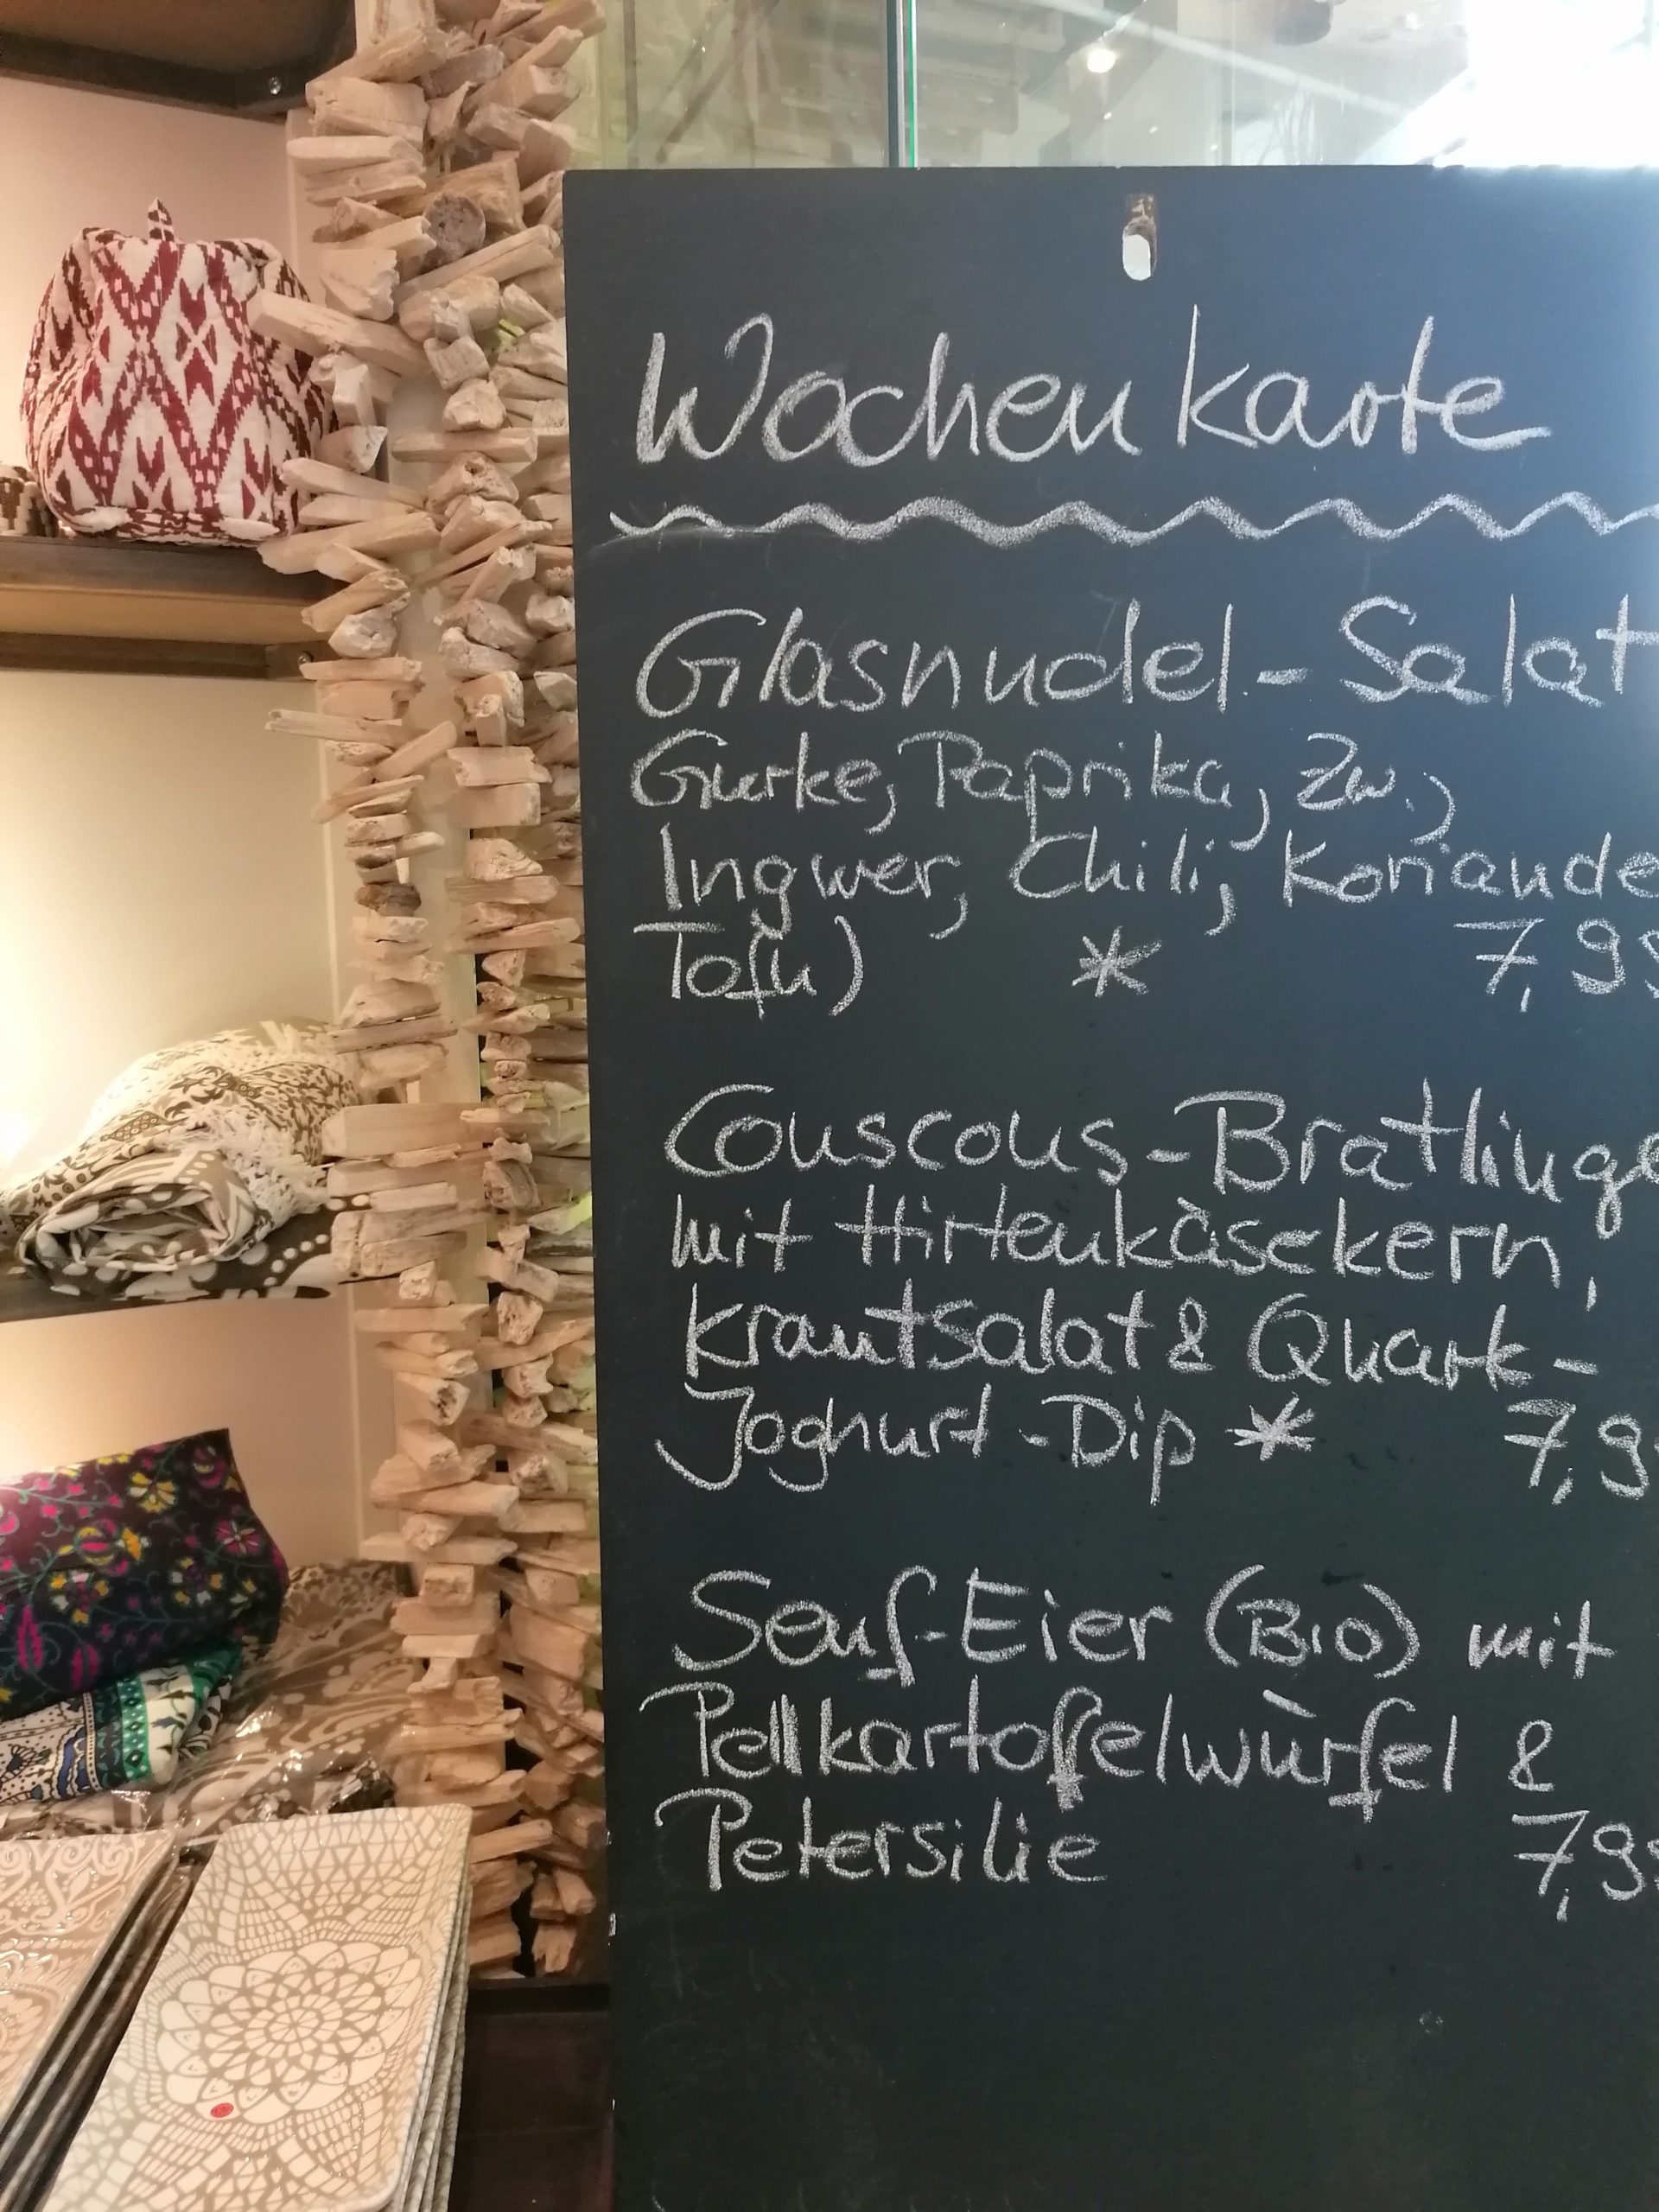 Wochenkarte
Glasnudel-Salat
Gurke, Paprika, Zw.,
Ingwer, Chili, Koriande
Tofu) * 7,95
Couscous-Bratlinge
mit Hirtenkäsekern,
Krautsalat & Quark-
Joghurt-Dip * 7,9
Senf-Eier (BIO) mit
Pellkartoffelwürfel &
Petersilie 7,95